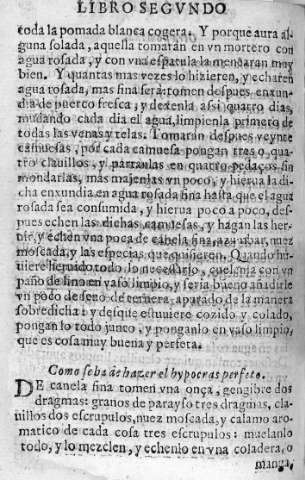 LIBRO SEGVNDO
toda la pomada blanca cogera. Y porque aura al-
guna solada, aquella tomaran en vn mortero con
agua rosada, y con vna espatula la menearan muy
bien. Y quantas mas vezes lo hizieren, y echaren
agua rosada, mas fina sera: tomen despues enxun-
dia de puerco fresca, y dexenla assi quatro dias,
mudando cada dia el agua, limpienla primero de
todas las venas y telas. Tomaran despues veynte
camuesas, por cada camuesa pongan tres o qua-
tro clauillos, y partanlas en quatro pedaços sin
mondarlas, mas majenlas vn poco, y hierua la di
cha enxundia en agua rosada hasta que el agua
rosada sea consumida, y hierua poco a poco, des-
pues echen las dichas camuesas, y hagan las her-
uir, y echen vna poca de canela fina, nuez
moscada, y las especias que quisieren. Quando hu-
uiere liquido todo lo necessario, cuelenla con vn
paño de lino en vaso limpio, y seria bueno añadirle
vn poco de seuo de ternera apurado de la manera
sobredicha: y desque estuuiere cozido y colado,
pongan lo todo junto, y ponganlo en vaso limpio,
que es cosa muy buena y perfeta.
Como se ha de hazer el hypocras perfeto.
DE canela fina tomen vna onça, gengibre dos
dragmas: granos de parayso tres dragmas, cla-
uillos dos escrupulos, nuez moscada, y calamo aro-
matico de cada cosa tres escrupulos: muelanlo
todo, y lo mezclen, y echenlo en vna coladera, o
manga,